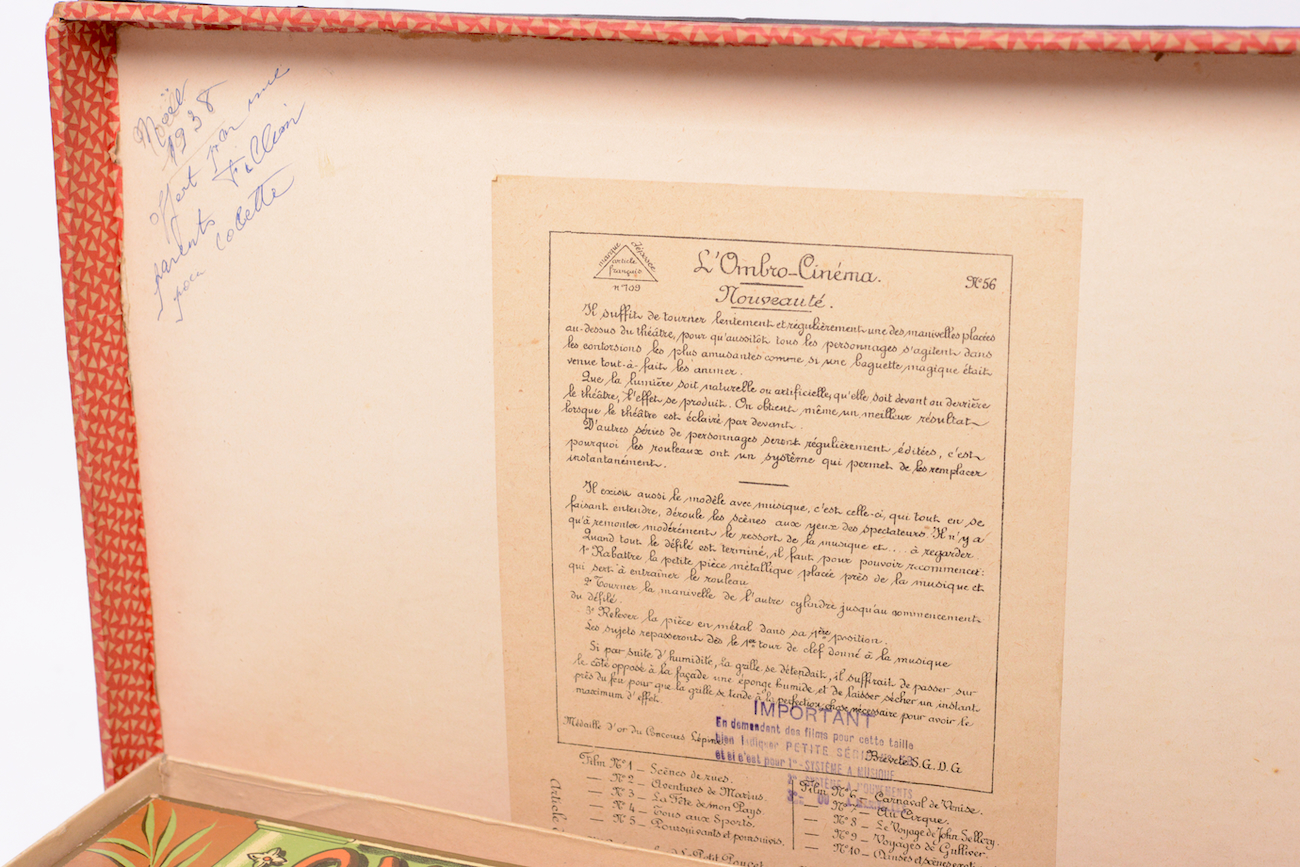 Noël
1938
offert par
parents Fillion
pour Colette
marque déposée
article
français
n° 709
L'Ombro-Cinéma.
N° 56
Nouveauté.
Il suffit de tourner lentement et régulièrement une des manivelles placées
au-dessus du théâtre, pour qu'aussitôt tous les personnages s'agitent dans
les contorsions les plus amusantes comme si une baguette magique était
venue tout-à-fait les animer.
Que la lumière soit naturelle ou artificielle, qu'elle soit devant ou derrière
le théâtre, l'effet se produit. On obtient même un meilleur résultat
lorsque le théâtre est éclairé par devant.
D'autres séries de personnages seront régulièrement éditées, c'est
pourquoi les rouleaux ont un système qui permet de les remplacer
instantanément.
Il existe aussi le modèle avec musique, c'est celle-ci, qui tout en se
faisant entendre, déroule les scènes aux yeux des spectateurs. Il n'y a
qu'à remonter modérément le ressort de la musique et .... à regarder.
Quand tout le défilé est terminé, il faut pour pouvoir recommencer:
1° Rabattre la petite pièce métallique placée près de la musique et
qui sert à entraîner le rouleau
2° Tourner la manivelle de l'autre cylindre jusqu'au commencement
du défilé.
3° Relever la pièce en métal dans sa 1ère position.
Les sujets repasseront dès le 1er tour de clef donné à la musique
Si par suite d'humidité, la grille se détendait, il suffirait de passer sur
le côté opposé à la façade une éponge humide et de laisser sécher un instant
près du feu pour que la grille se tende à la perfection, chose nécessaire pour avoir le
maximum d'effet.
IMPORTANT
En demandant des films pour cette taille
bien indiquer PETITE SÉRIE
et si c'est pour 1° - SYSTÈME A MUSIQUE
2° SYSTÈME A MOUVEMENTS
3°
Médaille d'or du Concours Lépine
Brevetés S.G.D.G
Film N° 1 — Scènes de rues.
— N° 2 — Aventures de Marius.
— N° 3 — La Fête de mon Pays.
— N° 4 — Tous aux Sports.
— N° 5 — Poursuivants et poursuivis.
Film N° 6 — Carnaval de Venise.
— N° 7 — Au Cirque.
— N° 8 — Le Voyage de John Sellery.
— N° 9 — Voyages de Gulliver.
— N° 10 — Danses et scènes
Article
Le Petit Poucet